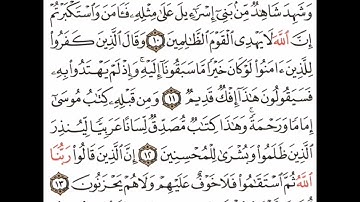 وَشَهِدَ شَاهِدٌ مِّنۢ بَنِىٓ إِسْرَٰٓءِيلَ عَلَىٰ مِثْلِهِۦ فَـَٔامَنَ وَٱسْتَكْبَرْتُمْ
إِنَّ ٱللَّهَ لَا يَهْدِى ٱلْقَوْمَ ٱلظَّٰلِمِينَ ١٠ وَقَالَ ٱلَّذِينَ كَفَرُوا۟
لِلَّذِينَ ءَامَنُوا۟ لَوْ كَانَ خَيْرًا مَّا سَبَقُونَآ إِلَيْهِ ۚ وَإِذْ لَمْ يَهْتَدُوا۟ بِهِۦ
فَسَيَقُولُونَ هَٰذَآ إِفْكٌ قَدِيمٌ ١١ وَمِن قَبْلِهِۦ كِتَٰبُ مُوسَىٰٓ
إِمَامًا وَرَحْمَةً ۚ وَهَٰذَا كِتَٰبٌ مُّصَدِّقٌ لِّسَانًا عَرَبِيًّا لِّيُنذِرَ
ٱلَّذِينَ ظَلَمُوا۟ وَبُشْرَىٰ لِلْمُحْسِنِينَ ١٢ إِنَّ ٱلَّذِينَ قَالُوا۟ رَبُّنَا
ٱللَّهُ ثُمَّ ٱسْتَقَٰمُوا۟ فَلَا خَوْفٌ عَلَيْهِمْ وَلَا هُمْ يَحْزَنُونَ ١٣